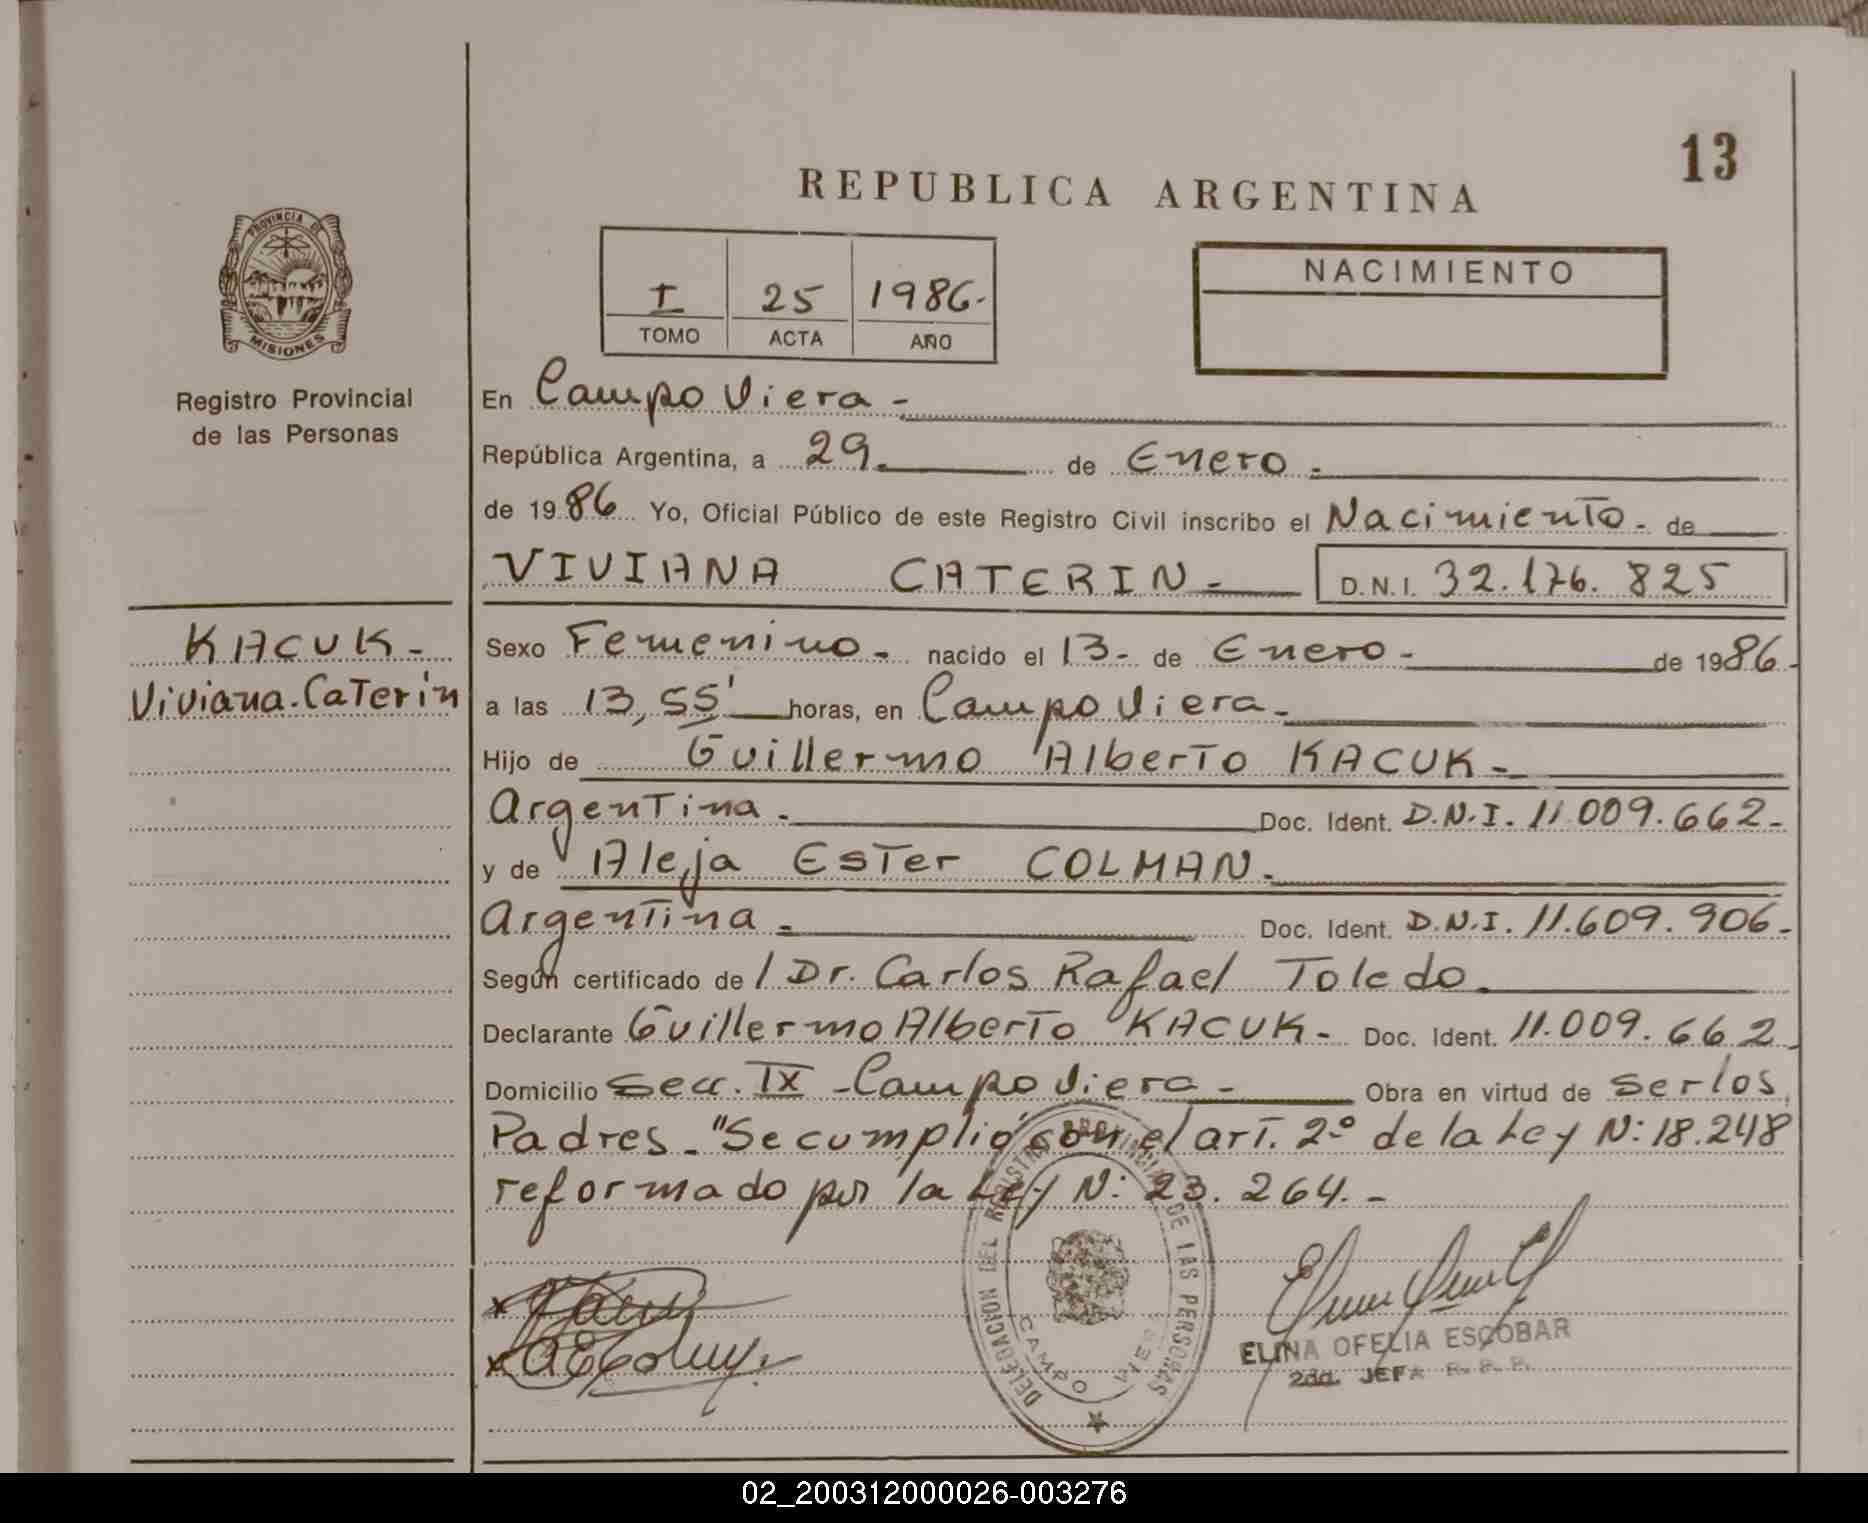 13
REPUBLICA ARGENTINA
PROVINCIA DE
MISIONES
Registro Provincial
de las Personas
I 25 1986.-
TOMO ACTA AÑO
NACIMIENTO
En Campo Viera -
República Argentina, a 29. de Enero.-
de 1986 Yo, Oficial Público de este Registro Civil inscribo el Nacimiento.- de
VIVIANA CATERIN.- D.N.I. 32.176.825
KACUK.-
Viviana.Caterin
Sexo Femenino.- nacido el 13.- de Enero.- de 1986.-
a las 13,55' horas, en Campo Viera.-
Hijo de Guillermo Alberto KACUK.-
Argentina.- Doc. Ident. D.N.I. 11.009.662.-
y de Aleja Ester COLMAN.-
Argentina.- Doc. Ident. D.N.I. 11.609.906.-
Según certificado de / Dr. Carlos Rafael Toledo.
Declarante Guillermo Alberto KACUK.- Doc. Ident. 11.009.662.-
Domicilio Secc. IX -Campo Viera.- Obra en virtud de ser los
Padres.- "Se cumplió con el art. 2º de la Ley N: 18.248
reformado por la Ley N: 23.264.-
DELEGACION DEL REGISTRO PROVINCIAL DE LAS PERSONAS
CAMPO VIERA
ELINA OFELIA ESCOBAR
2da. JEFA R. P. P.
02_200312000026-003276